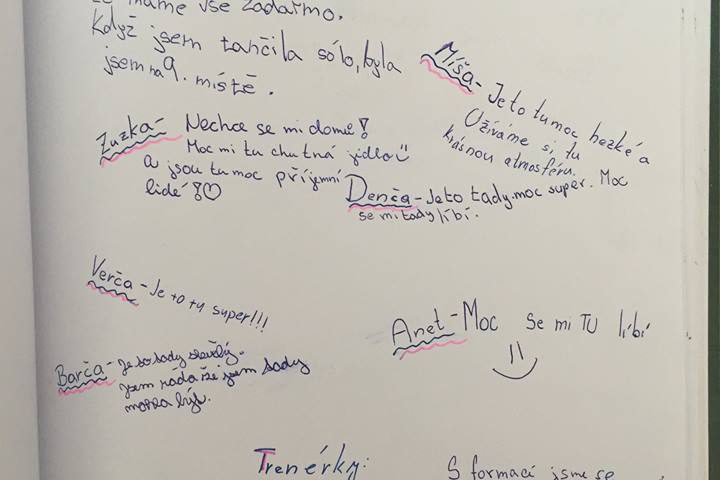 že máme vše zadarmo.
Když jsem tančila sólo, byla
jsem na 9. místě.
Míša - Je to tu moc hezké a
Užíváme si tu
krásnou atmosféru.
Zuzka - Nechce se mi domů!
Moc mi tu chutná jídlo
a jsou tu moc příjemní
lidé!
Denča - Je to tady moc super. Moc
se mi tady líbí.
Verča - Je to tu super!!!
Anet - Moc se mi TU líbí
Barča - Je to tady skvělý.
Jsem ráda že jsem tady
mohla být.
Trenérky:
S formací jsme se